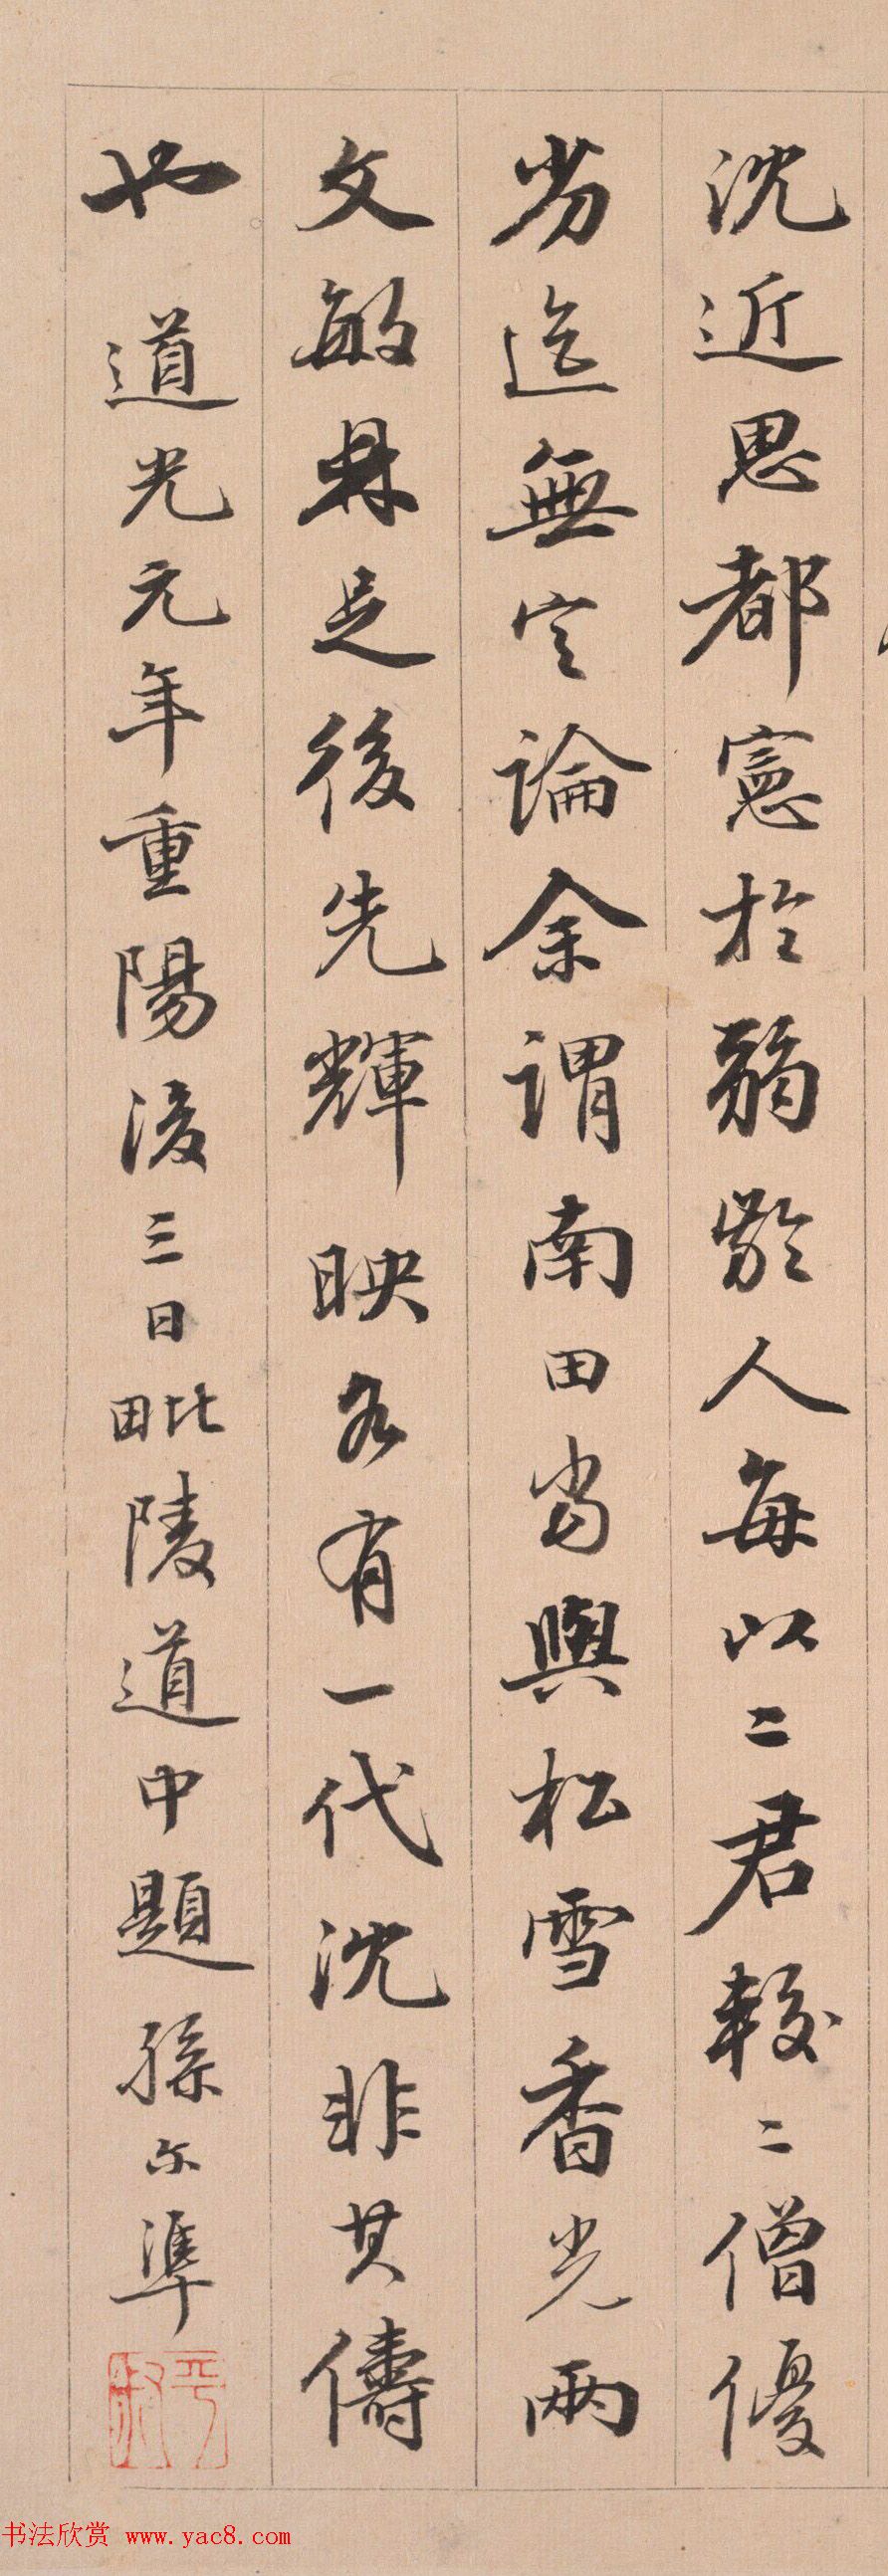 沈近思都憲於弱齡人每以二君較二僧優
劣迄無定論余謂南田當與松雪香光兩
文敏鼎足後先輝映各有一代沈非其儔
也 道光元年重陽後三日毗陵道中題孫尒準
平叔
书法欣赏 www.yac8.com